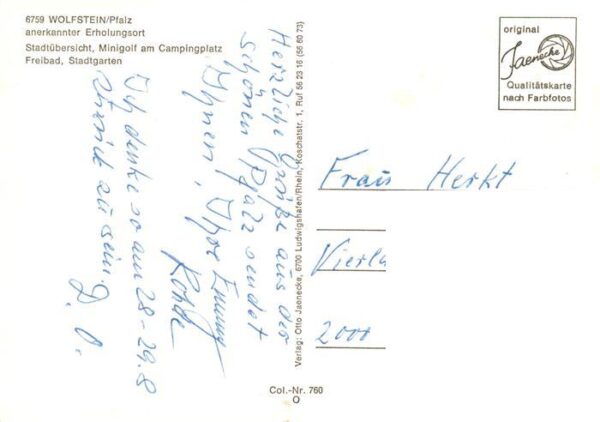 6759 WOLFSTEIN/Pfalz
anerkannter Erholungsort
Stadtübersicht, Minigolf am Campingplatz
Freibad, Stadtgarten
Herzliche Grüße aus der
schönen Pfalz sendet
Ihnen, Ihre Emmy
Rohde
Ich denke so am 28-29.8
zurück zu sein. D. O.
Verlag: Otto Jaenecke, 6700 Ludwigshafen/Rhein, Koschatstr. 1, Ruf 56 23 16 (56 60 73)
original
Jaenecke
Qualitätskarte
nach Farbfotos
Frau Herkt
Vierla
2000
Col.-Nr. 760
O